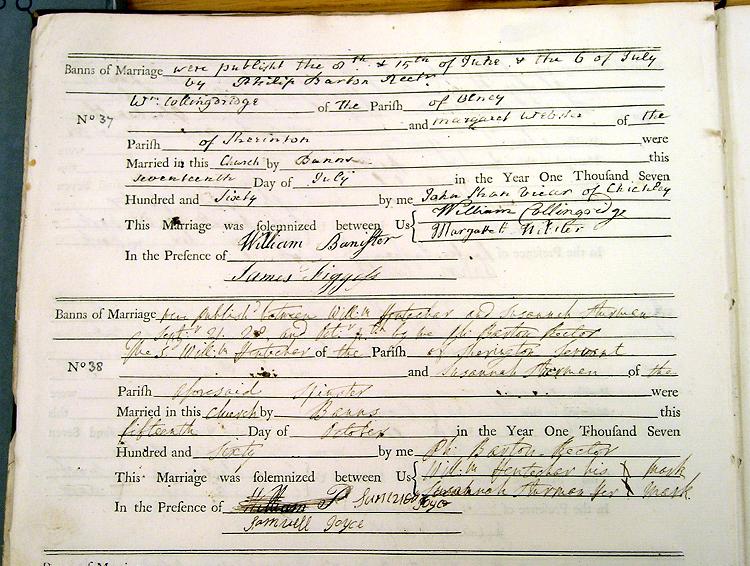 Banns of Marriage were publisht the 8th & 15th of June & the 6 of July
by Philip Barton Rectr
Wm Collingridge of The Parish of Olney
No 37 and Margaret Webster of the
Parish of Sherinton were
Married in this Church by Banns this
seventeenth Day of July in the Year One Thousand Seven
Hundred and Sixty by me John Shan Vicar of Chichley
This Marriage was solemnized between Us William Collingridge
Margarett
In the Presence of William Banister
James
Banns of Marriage were publish'd between Willm and Susannah
Septr 21. 28 and Octr 5th by me Phi Barton Rector
The sd Willm of the Parish of Sherington Servant
No 38 and Susannah of the
Parish aforesaid Spinster were
Married in this Church by Banns this
fifteenth Day of October in the Year One Thousand Seven
Hundred and Sixty by me Phi. Barton Rector
This Marriage was solemnized between Us Willm his X mark
Susannah her X mark
In the Presence of William P Joyce
Samuell Joyce
Banns of Marriage